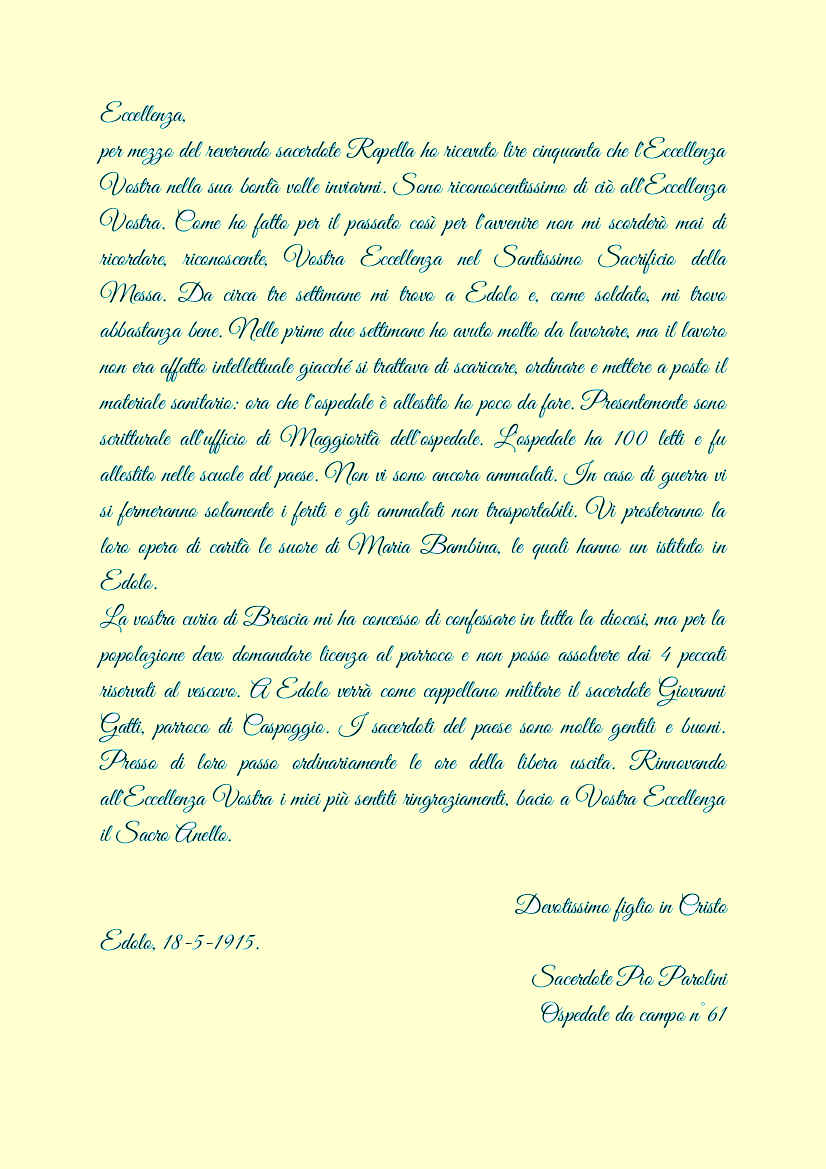 Eccellenza,
per mezzo del reverendo sacerdote Rapella ho ricevuto lire cinquanta che l'Eccellenza
Vostra nella sua bontà volle inviarmi. Sono riconoscentissimo di ciò all'Eccellenza
Vostra. Come ho fatto per il passato così per l'avvenire non mi scorderò mai di
ricordare, riconoscente, Vostra Eccellenza nel Santissimo Sacrificio della
Messa. Da circa tre settimane mi trovo a Edolo e, come soldato, mi trovo
abbastanza bene. Nelle prime due settimane ho avuto molto da lavorare, ma il lavoro
non era affatto intellettuale giacché si trattava di scaricare, ordinare e mettere a posto il
materiale sanitario; ora che l'ospedale è allestito ho poco da fare. Presentemente sono
scritturale all'ufficio di Maggiorità dell'ospedale. L'ospedale ha 100 letti e fu
allestito nelle scuole del paese. Non vi sono ancora ammalati. In caso di guerra vi
si fermeranno solamente i feriti e gli ammalati non trasportabili. Vi presteranno la
loro opera di carità le suore di Maria Bambina, le quali hanno un istituto in
Edolo.
La vostra curia di Brescia mi ha concesso di confessare in tutta la diocesi, ma per la
popolazione devo domandare licenza al parroco e non posso assolvere dai 4 peccati
riservati al vescovo. A Edolo verrà come cappellano militare il sacerdote Giovanni
Gatti, parroco di Caspoggio. I sacerdoti del paese sono molto gentili e buoni.
Presso di loro passo ordinariamente le ore della libera uscita. Rinnovando
all'Eccellenza Vostra i miei più sentiti ringraziamenti, bacio a Vostra Eccellenza
il Sacro Anello.
Devotissimo figlio in Cristo
Edolo, 18-5-1915.
Sacerdote Pio Parolini
Ospedale da campo n° 61